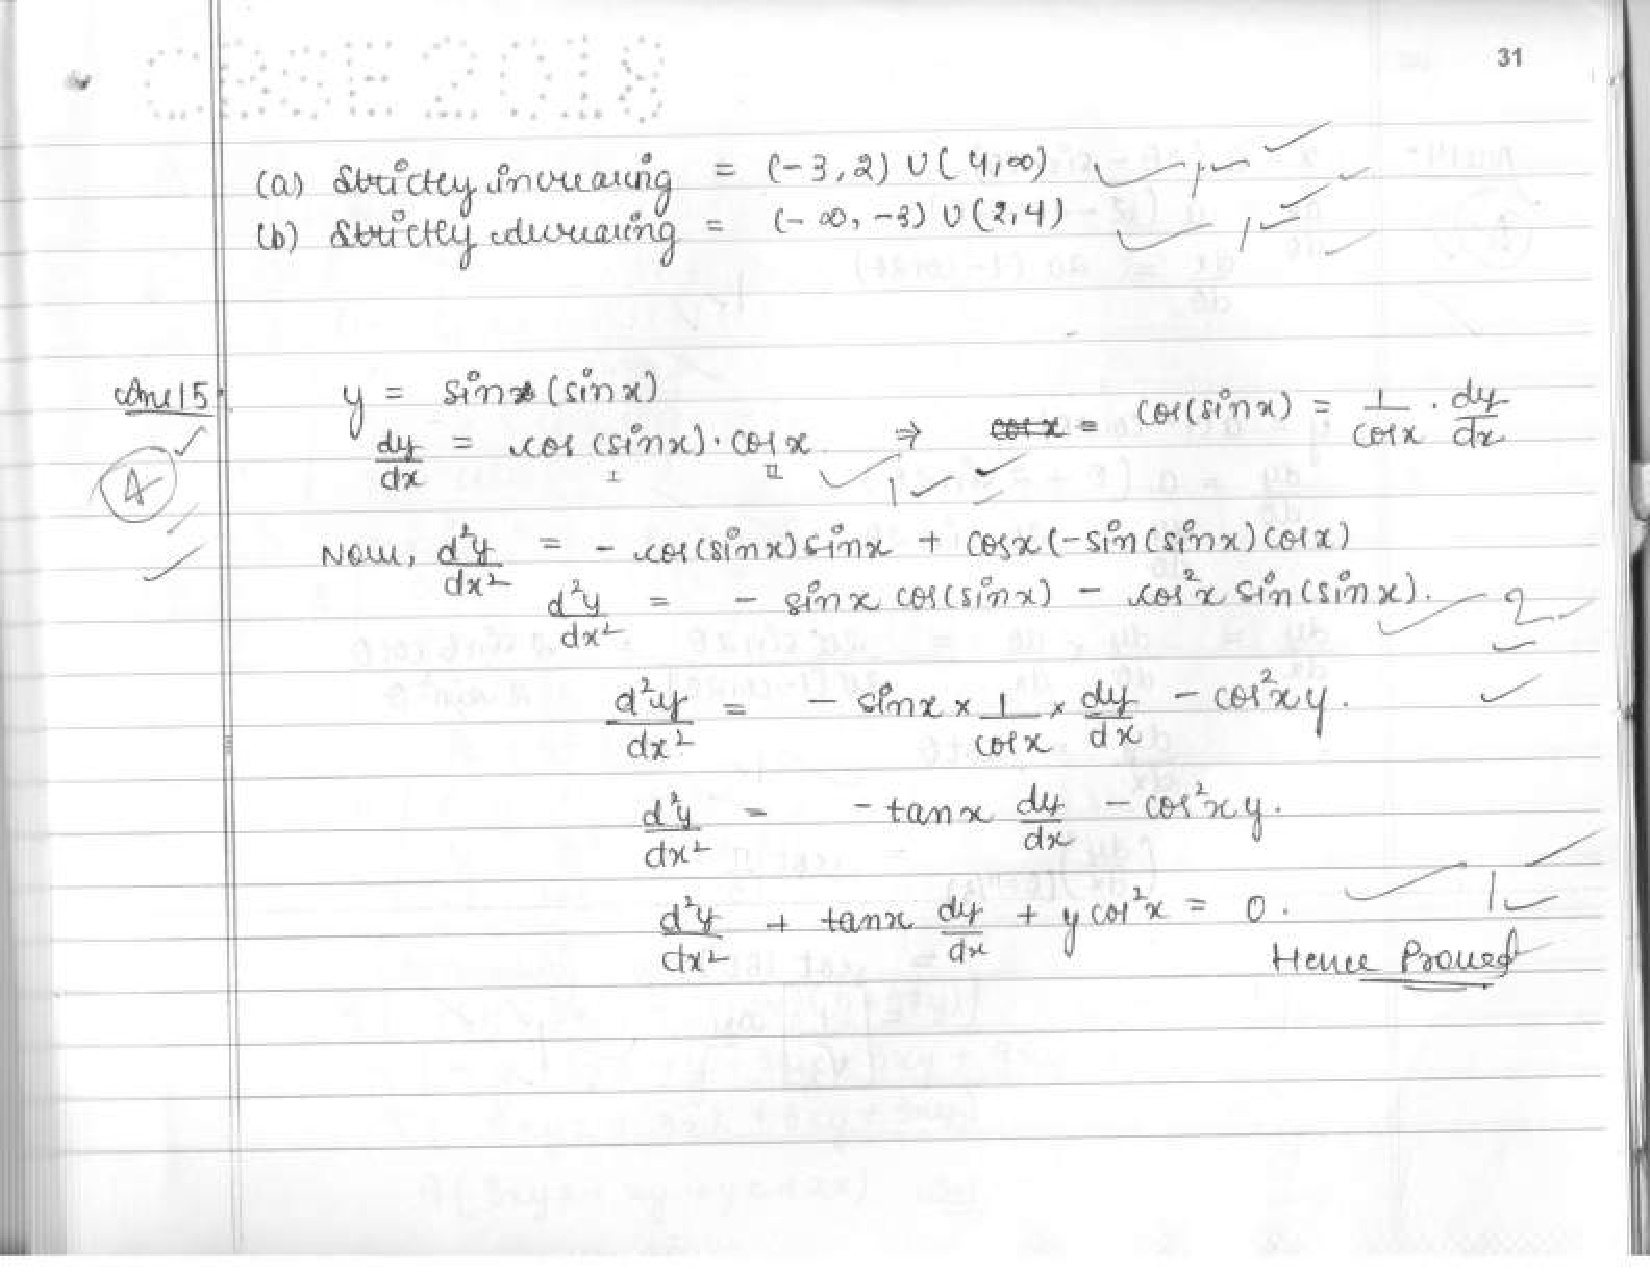 CBSE 2018
31
(a) Strictly increasing = (-3,2) ∪ (4,∞) 1
(b) Strictly decreasing = (-∞, -3) ∪ (2,4) 1
Ans 15.
y = sin (sin x)
dy/dx = cos (sin x) · cos x ⇒ cos x = cos(sin x) = 1/cos x · dy/dx
I II 1
4
Now, d²y/dx² = - cos(sin x) sin x + cos x (-sin (sin x) cos x)
d²y/dx² = - sin x cos(sin x) - cos²x sin (sin x). 2
d²y/dx² = - sin x × 1/cos x × dy/dx - cos²x y.
d²y/dx² = - tan x dy/dx - cos²x y.
d²y/dx² + tan x dy/dx + y cos²x = 0. 1
Hence Proved